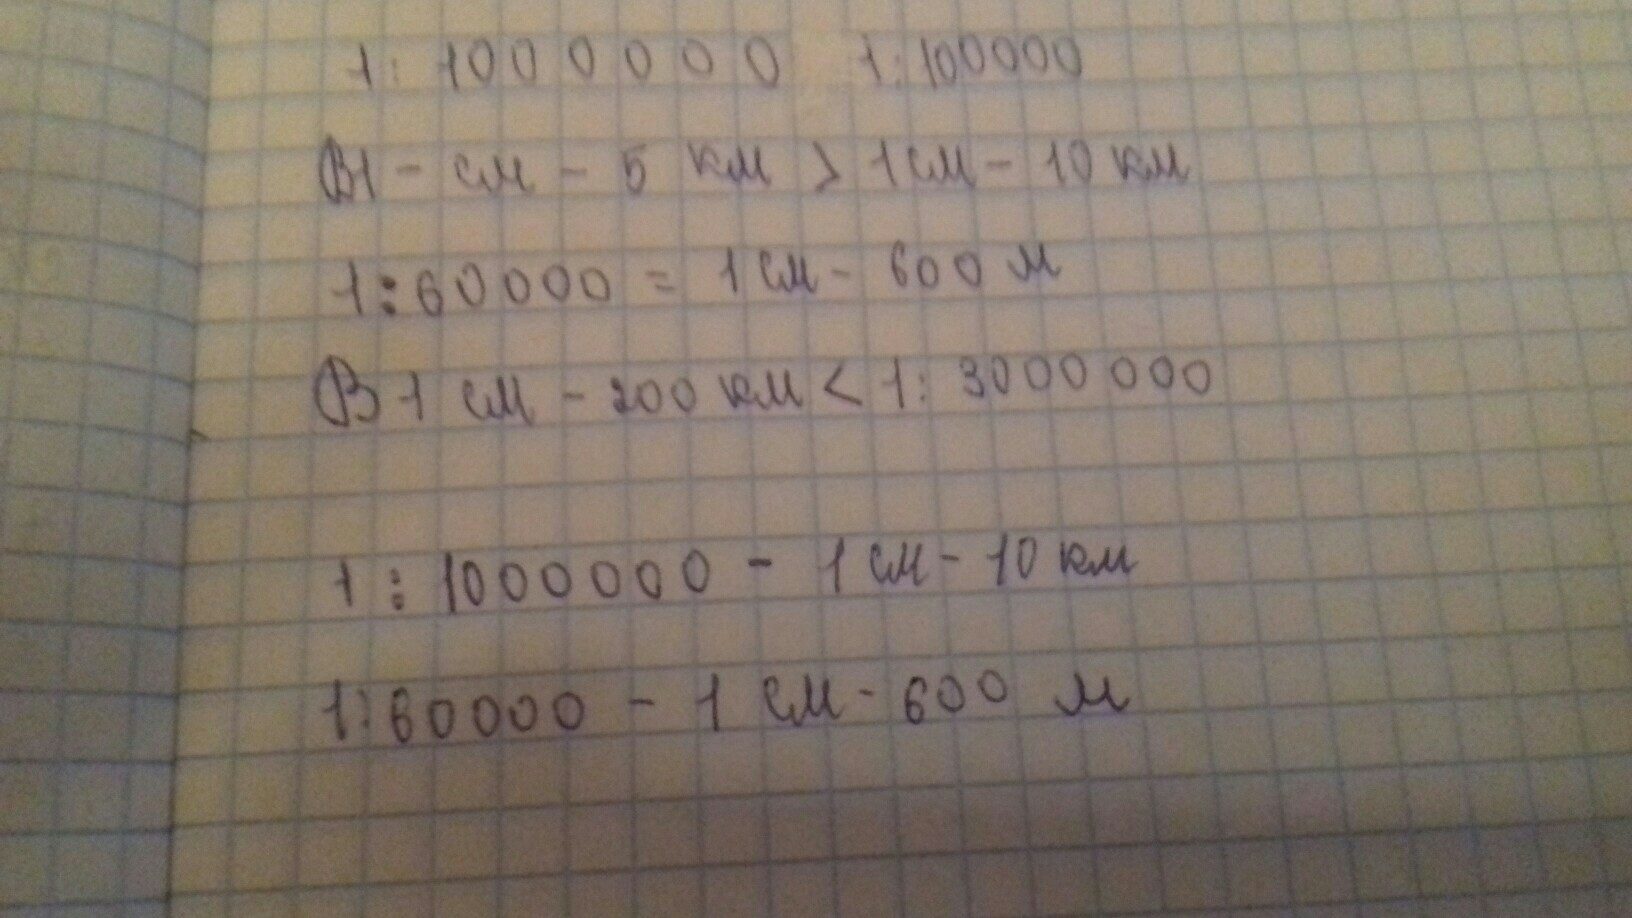 1: 1000000 1:100000
В1 - см - 5 км > 1 см - 10 км
1:60000 = 1 см - 600 м
В 1 см - 200 км < 1: 3000000
1 : 1000000 - 1 см - 10 км
1:60000 - 1 см - 600 м